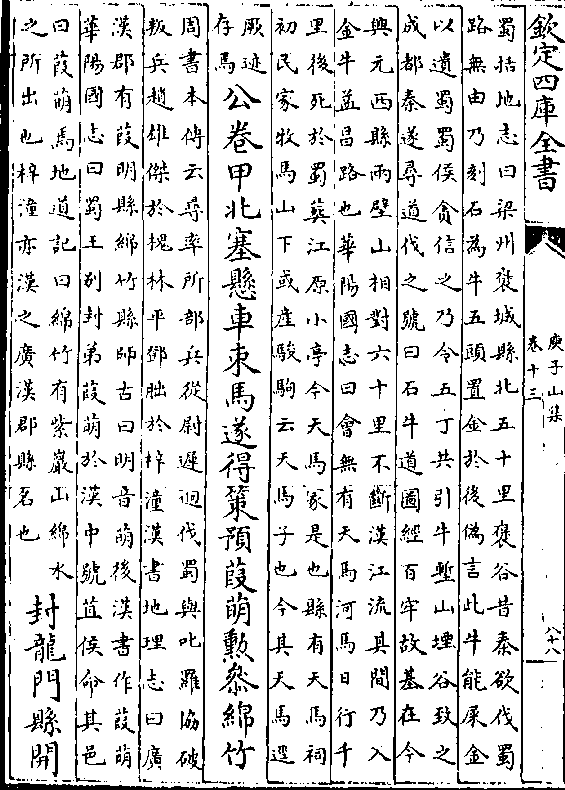 欽定四庫全書
庾子山集
卷十三
八十八
蜀括地志曰梁州褒城縣北五十里褒谷昔秦欲伐蜀
路無由乃刻石為牛五頭置金於後偽言此牛能屎金
以遺蜀蜀侯貪信之乃令五丁共引牛塹山堙谷致之
成都秦遂尋道伐之號曰石牛道圖經百牢故基在今
興元西縣兩壁山相對六十里不斷漢江流其間乃入
金牛益昌路也華陽國志曰會無有天馬河馬日行千
里後死於蜀葬江原小亭今天馬冢是也縣有天馬祠
初民家牧馬山下或産駿駒云天馬子也今其天馬逕
厥迹
存馬
公卷甲北塞懸車束馬遂得策預葭萌勲叅綿竹
周書本傳云尋率所部兵從尉遲迥伐蜀與叱羅協破
叛兵趙雄傑於槐林平鄧朏於梓潼漢書地理志曰廣
漢郡有葭明縣綿竹縣師古曰明音萌後漢書作葭萌
華陽國志曰蜀王別封弟葭萌於漢中號苴侯命其邑
曰葭萌馬地道記曰綿竹有紫巖山綿水
之所出也梓潼亦漢之廣漢郡縣名也
封龍門縣開